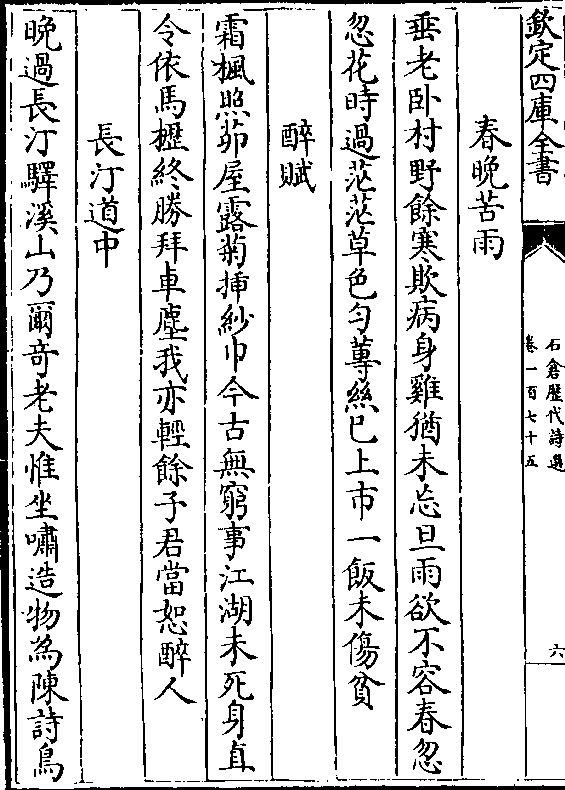 欽定四庫全書
石倉歷代詩選
卷一百七十五
六
春晚苦雨
垂老卧村野餘寒欺病身雞猶未忘旦雨欲不容春忽
忽花時過茫茫草色勻蓴絲已上市一飯未傷貧
醉賦
霜楓照茆屋露菊揷紗巾今古無窮事江湖未死身直
令依馬櫪終勝拜車塵我亦輕餘子君當恕醉人
長汀道中
晚過長汀驛溪山乃爾竒老夫惟坐嘯造物為陳詩鳥